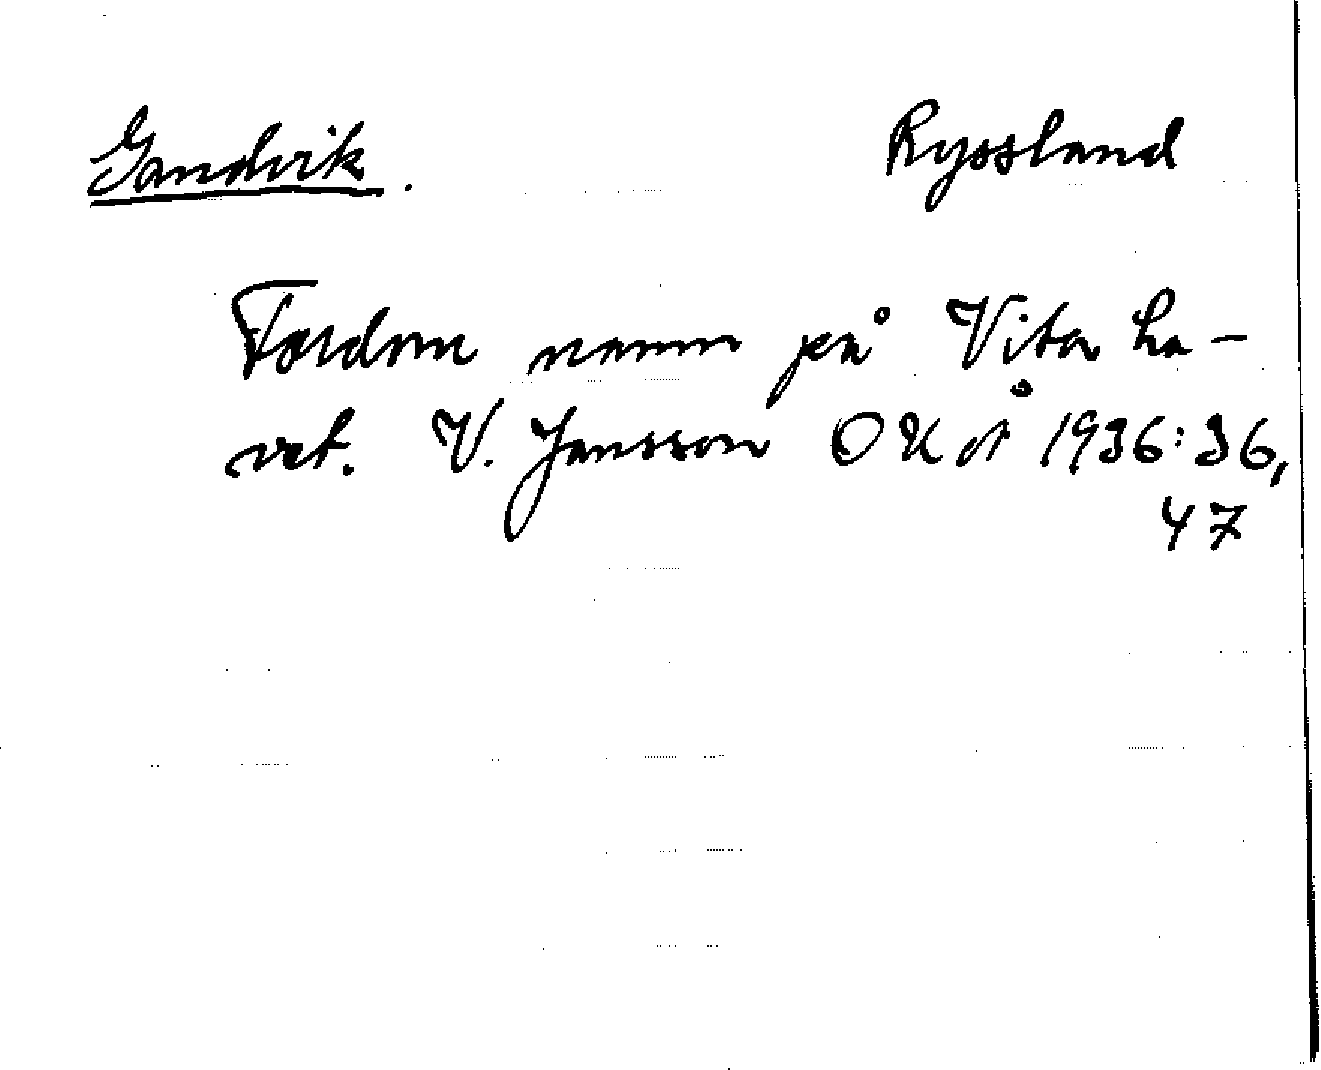 Gandvik.
Ryssland
Fordom namn på Vita ha-
vet. V. Jansson OUÅ 1936:36,
47